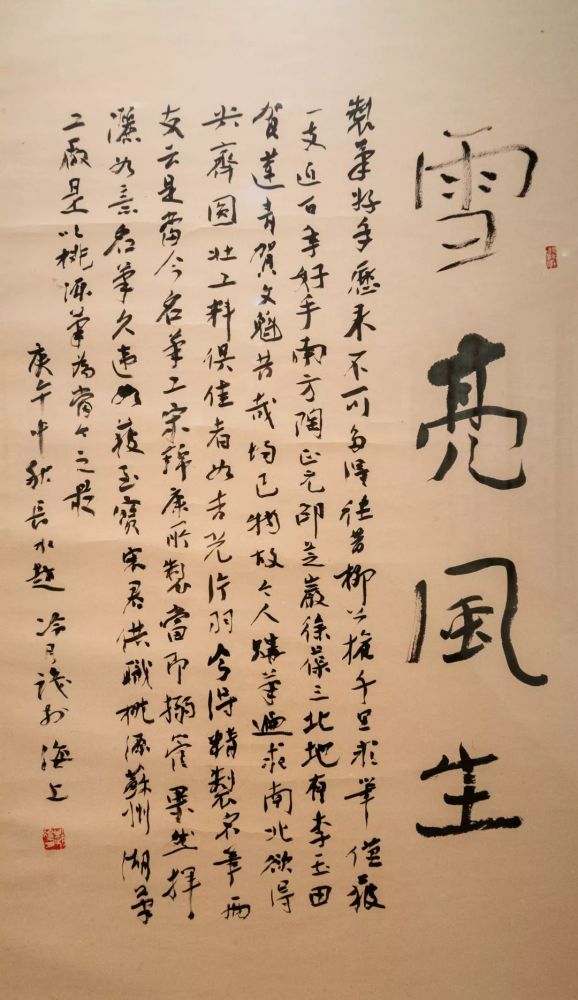 雪亮風生
製筆好手歷来不可多得往昔柳公權千里求筆僅獲
一支近百年好手南方陶正元邵芝巖徐葆三北地有李玉田
賀蓮青賀文魁昔哉均已物故今人購筆遍求南北欲得
尖齊圓壯工料俱佳者如吉光片羽今得精製名筆兩
支云是當今名筆工宋錦康所製當即搦管果然揮
灑如意名筆久違如獲至寶宋君供職桃源蘇州湖筆
二廠是以桃源筆為當今之最
庚午中秋長水趙冷月識於海上